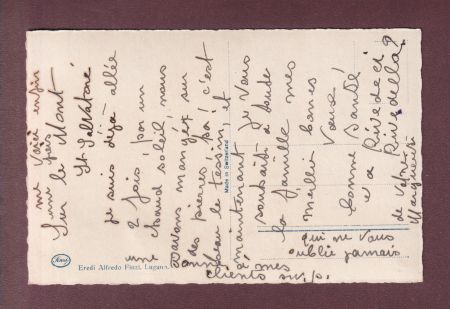 me voici enfin
une fois
Sur le Mont
St Salvatoré
je suis déjà allée
2 fois, par un
chaud soleil, nous
avons mangés sur
des pierres, c'est
beau le Tessin, et
maintenant je vous
souhaite à toute
la famille mes
bones
Vœux!
bonne Santé
et a Rivedeci
Rivedella?
de votre
Marguerite
qui ne vous
oublie jamais
une à mes
clients s.v.p.
Made in Switzerland
Eredi Alfredo Finzi, Lugano